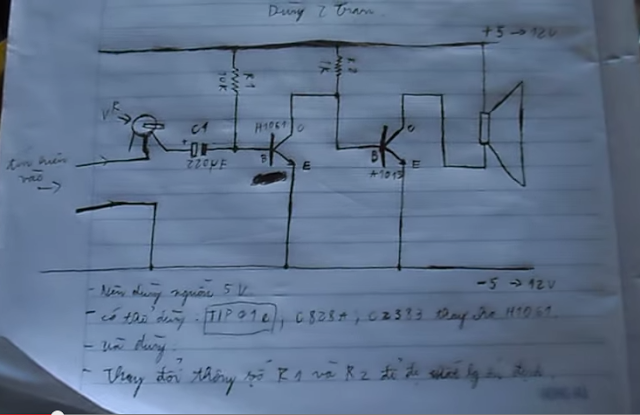 Dùng 2 Tran
+5 → 12V
R1
1K
R2
1K
VR
C1
220µF
H1061
B
C
E
B
C
E
A1013
tín hiệu
vào
-5 → 12V
- Nên dùng nguồn 5V
- có thể dùng: , C828A, C2383 thay cho H1061
- và dùng
- Thay đổi thông số R1 và R2 để